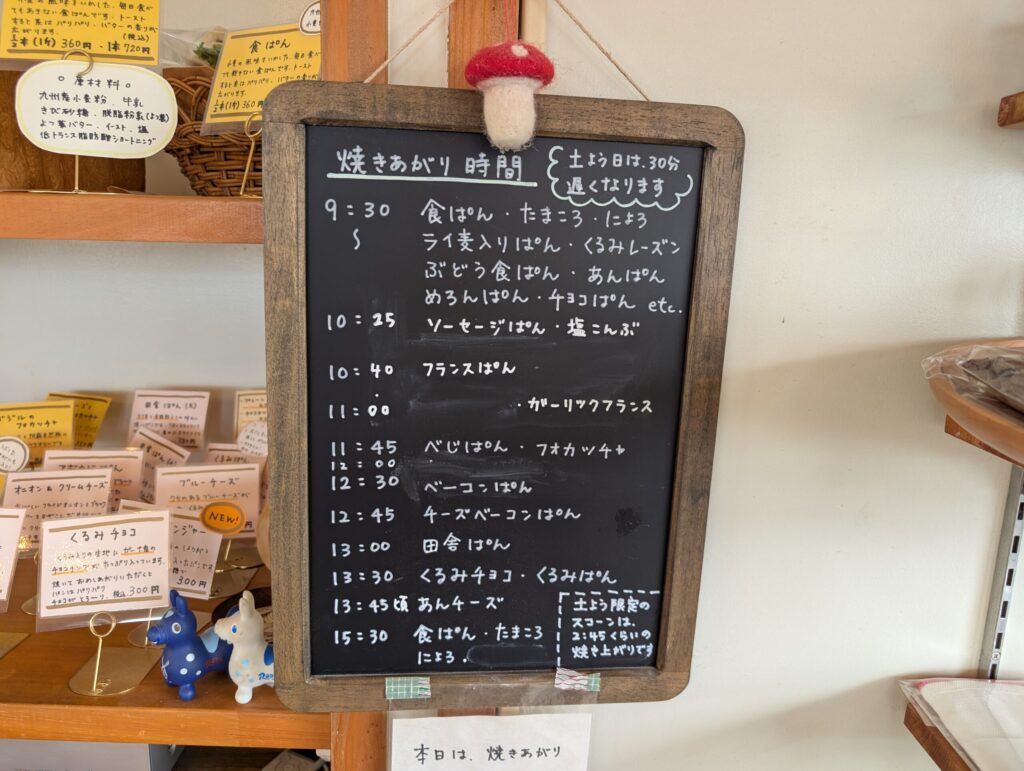 でもあきない食ぱんです。トースト
½本(1斤)360円・1本720円
(税込)
。原材料。
九州産小麦粉、牛乳
きび砂糖、脱脂粉乳(よつ葉)
よつ葉バター、イースト、塩
低トランス脂肪酸ショートニング
食ぱん
½本(1斤)360円
焼きあがり時間
土よう日は、30分
遅くなります
9:30 食ぱん・たまころ・にょろ
〜 ライ麦入りぱん・くるみレーズン
ぶどう食ぱん・あんぱん
めろんぱん・チョコぱん etc.
10:25 ソーセージぱん・塩こんぶ
10:40 フランスぱん
11:00 ・ガーリックフランス
11:45 べじぱん・フォカッチャ
12:00
12:30 ベーコンぱん
12:45 チーズベーコンぱん
13:00 田舎ぱん
13:30 くるみチョコ・くるみぱん
13:45頃 あんチーズ
15:30 食ぱん・たまころ
にょろ.
土よう限定の
スコーンは、
2:45くらいの
焼き上がりです
本日は、焼きあがり
フォカッチャ
オニオン&クリームチーズ
ブルーチーズ
NEW!
ンジャー
300円
くるみチョコ
たっぷり入っています。
焼いておめしあがりいただくと
パンはパリパリ
チョコがとろ〜り。税込300円